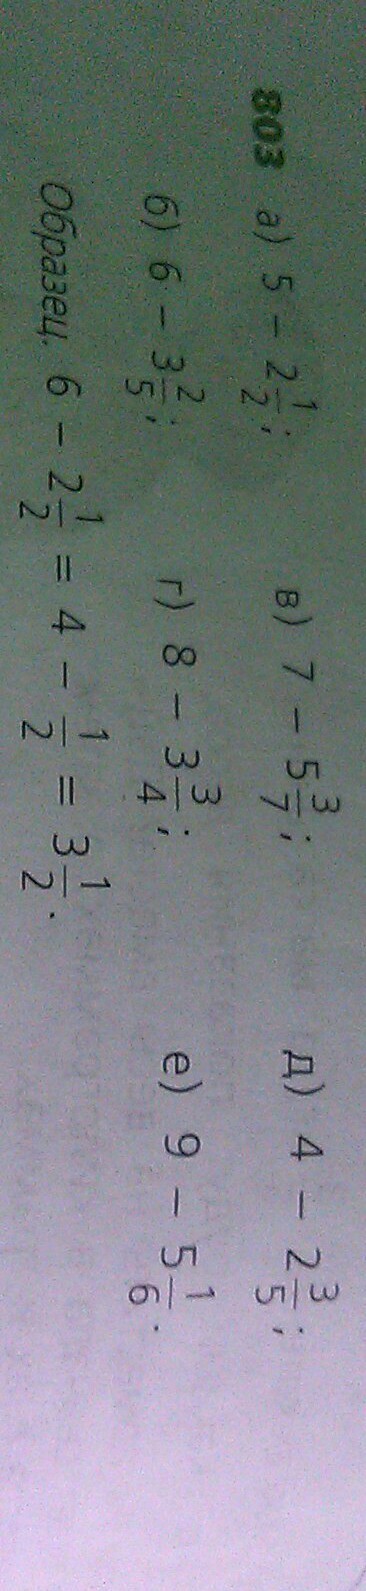 803 а) 5 − 2 1/2; в) 7 − 5 3/7; д) 4 − 2 3/5;
б) 6 − 3 2/5; г) 8 − 3 3/4; е) 9 − 5 1/6.
Образец. 6 − 2 1/2 = 4 − 1/2 = 3 1/2.